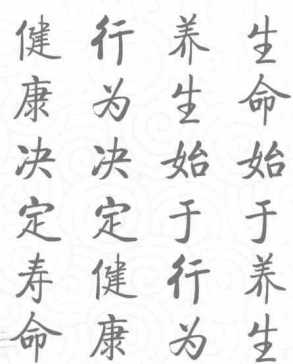 生命始于养生
养生始于行为
行为决定健康
健康决定寿命